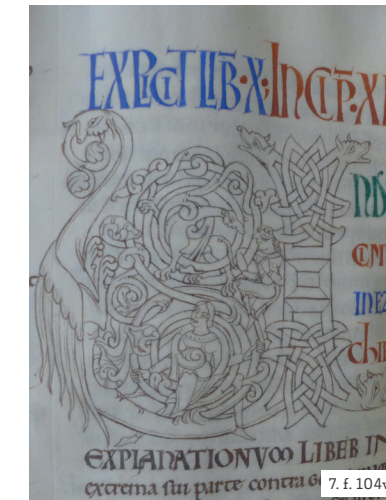 EXPLICIT LIB̄·X· INCIP̄·XI
INEZ
EXPLANATIONVM LIBER
extrema sui parte contra
7. f. 104v